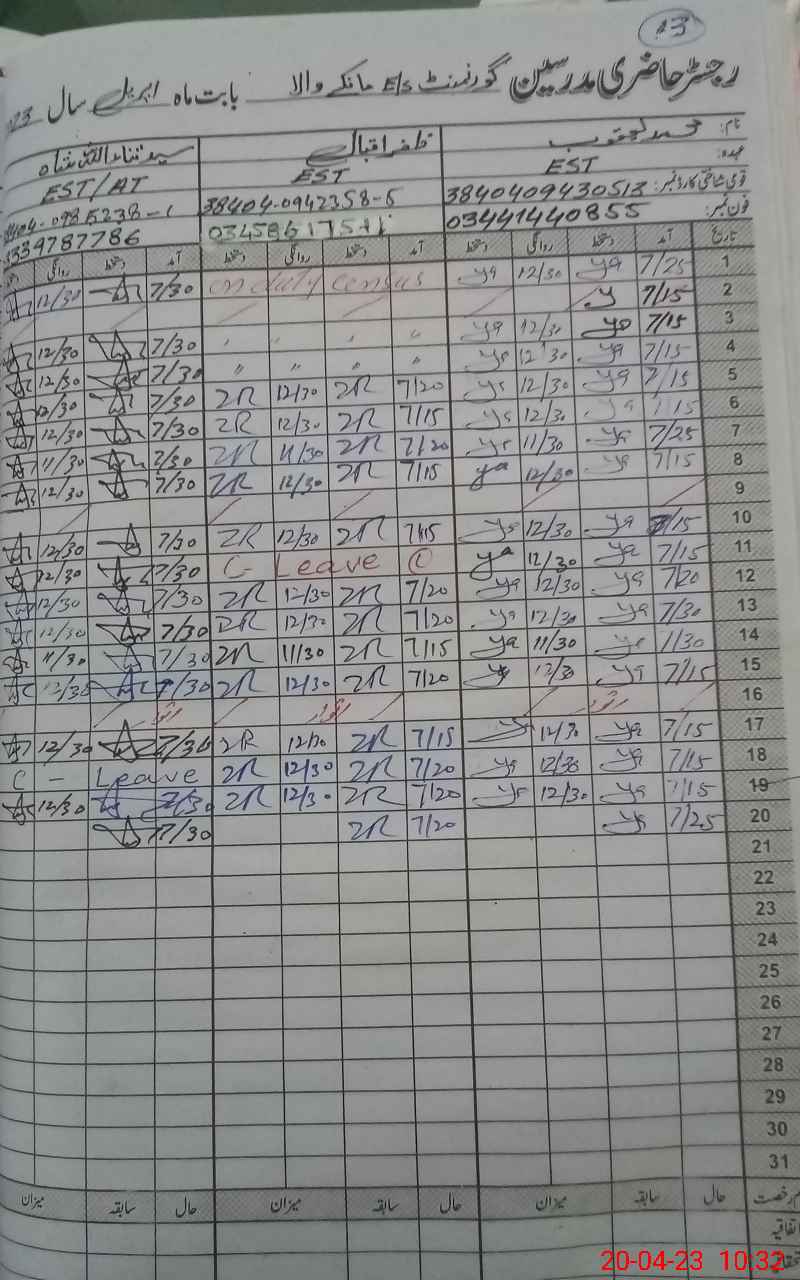 13
رجسٹر حاضری مدرسین گورنمنٹ E/s مانکے والا بابت ماہ اپریل سال 23
نام: محمد یعقوب ظفر اقبال سید ثناء اللہ شاہ
عہدہ: EST EST EST/AT
قومی شناختی کارڈ نمبر: 3840409430513 38404-0942358-5
فون نمبر: 03441440855 3339787786
تاریخ آمد دستخط روانگی دستخط آمد دستخط روانگی دستخط آمد دستخط روانگی
1 7/25 ya 12/30 ya on duty census 7/30 12/30
2 7/15 y
3 7/15 ya 12/30 ya 〃 〃 〃 〃 7/30 12/30
4 7/15 ya 12/30 ya 〃 〃 〃 〃 7/30 12/30
5 7/15 ya 12/30 ya 7/20 ZR 12/30 ZR 7/30 12/30
6 7/15 ya 12/30 ya 7/15 ZR 12/30 ZR 7/30 12/30
7 7/25 ya 11/30 ya 7/20 ZR 11/30 ZR 7/30 11/30
8 7/15 ya 12/30 ya 7/15 ZR 12/30 ZR 7/30 12/30
9
10 7/15 ya 12/30 ya 7/15 ZR 12/30 ZR 7/30 12/30
11 7/15 ya 12/30 ya C- Leave 7/30 12/30
12 7/20 ya 12/30 ya 7/20 ZR 12/30 ZR 7/30 12/30
13 7/30 ya 12/30 ya 7/20 ZR 12/30 ZR 7/30 12/30
14 7/30 ya 11/30 ya 7/15 ZR 11/30 ZR 7/30 11/30
15 7/15 ya 12/30 ya 7/20 ZR 12/30 ZR 7/30 12/30
16 اتوار اتوار اتوار
17 7/15 ya 12/30 7/15 ZR 12/30 ZR 7/30 12/30
18 7/15 ya 12/30 ya 7/20 ZR 12/30 ZR C - Leave
19 7/15 ya 12/30 ya 7/20 ZR 12/30 ZR 7/30 12/30
20 7/25 ya 7/20 ZR 7/30
21
22
23
24
25
26
27
28
29
30
31
رخصت حال سابقہ میزان حال سابقہ میزان حال سابقہ میزان
اتفاقیہ
20-04-23 10:32